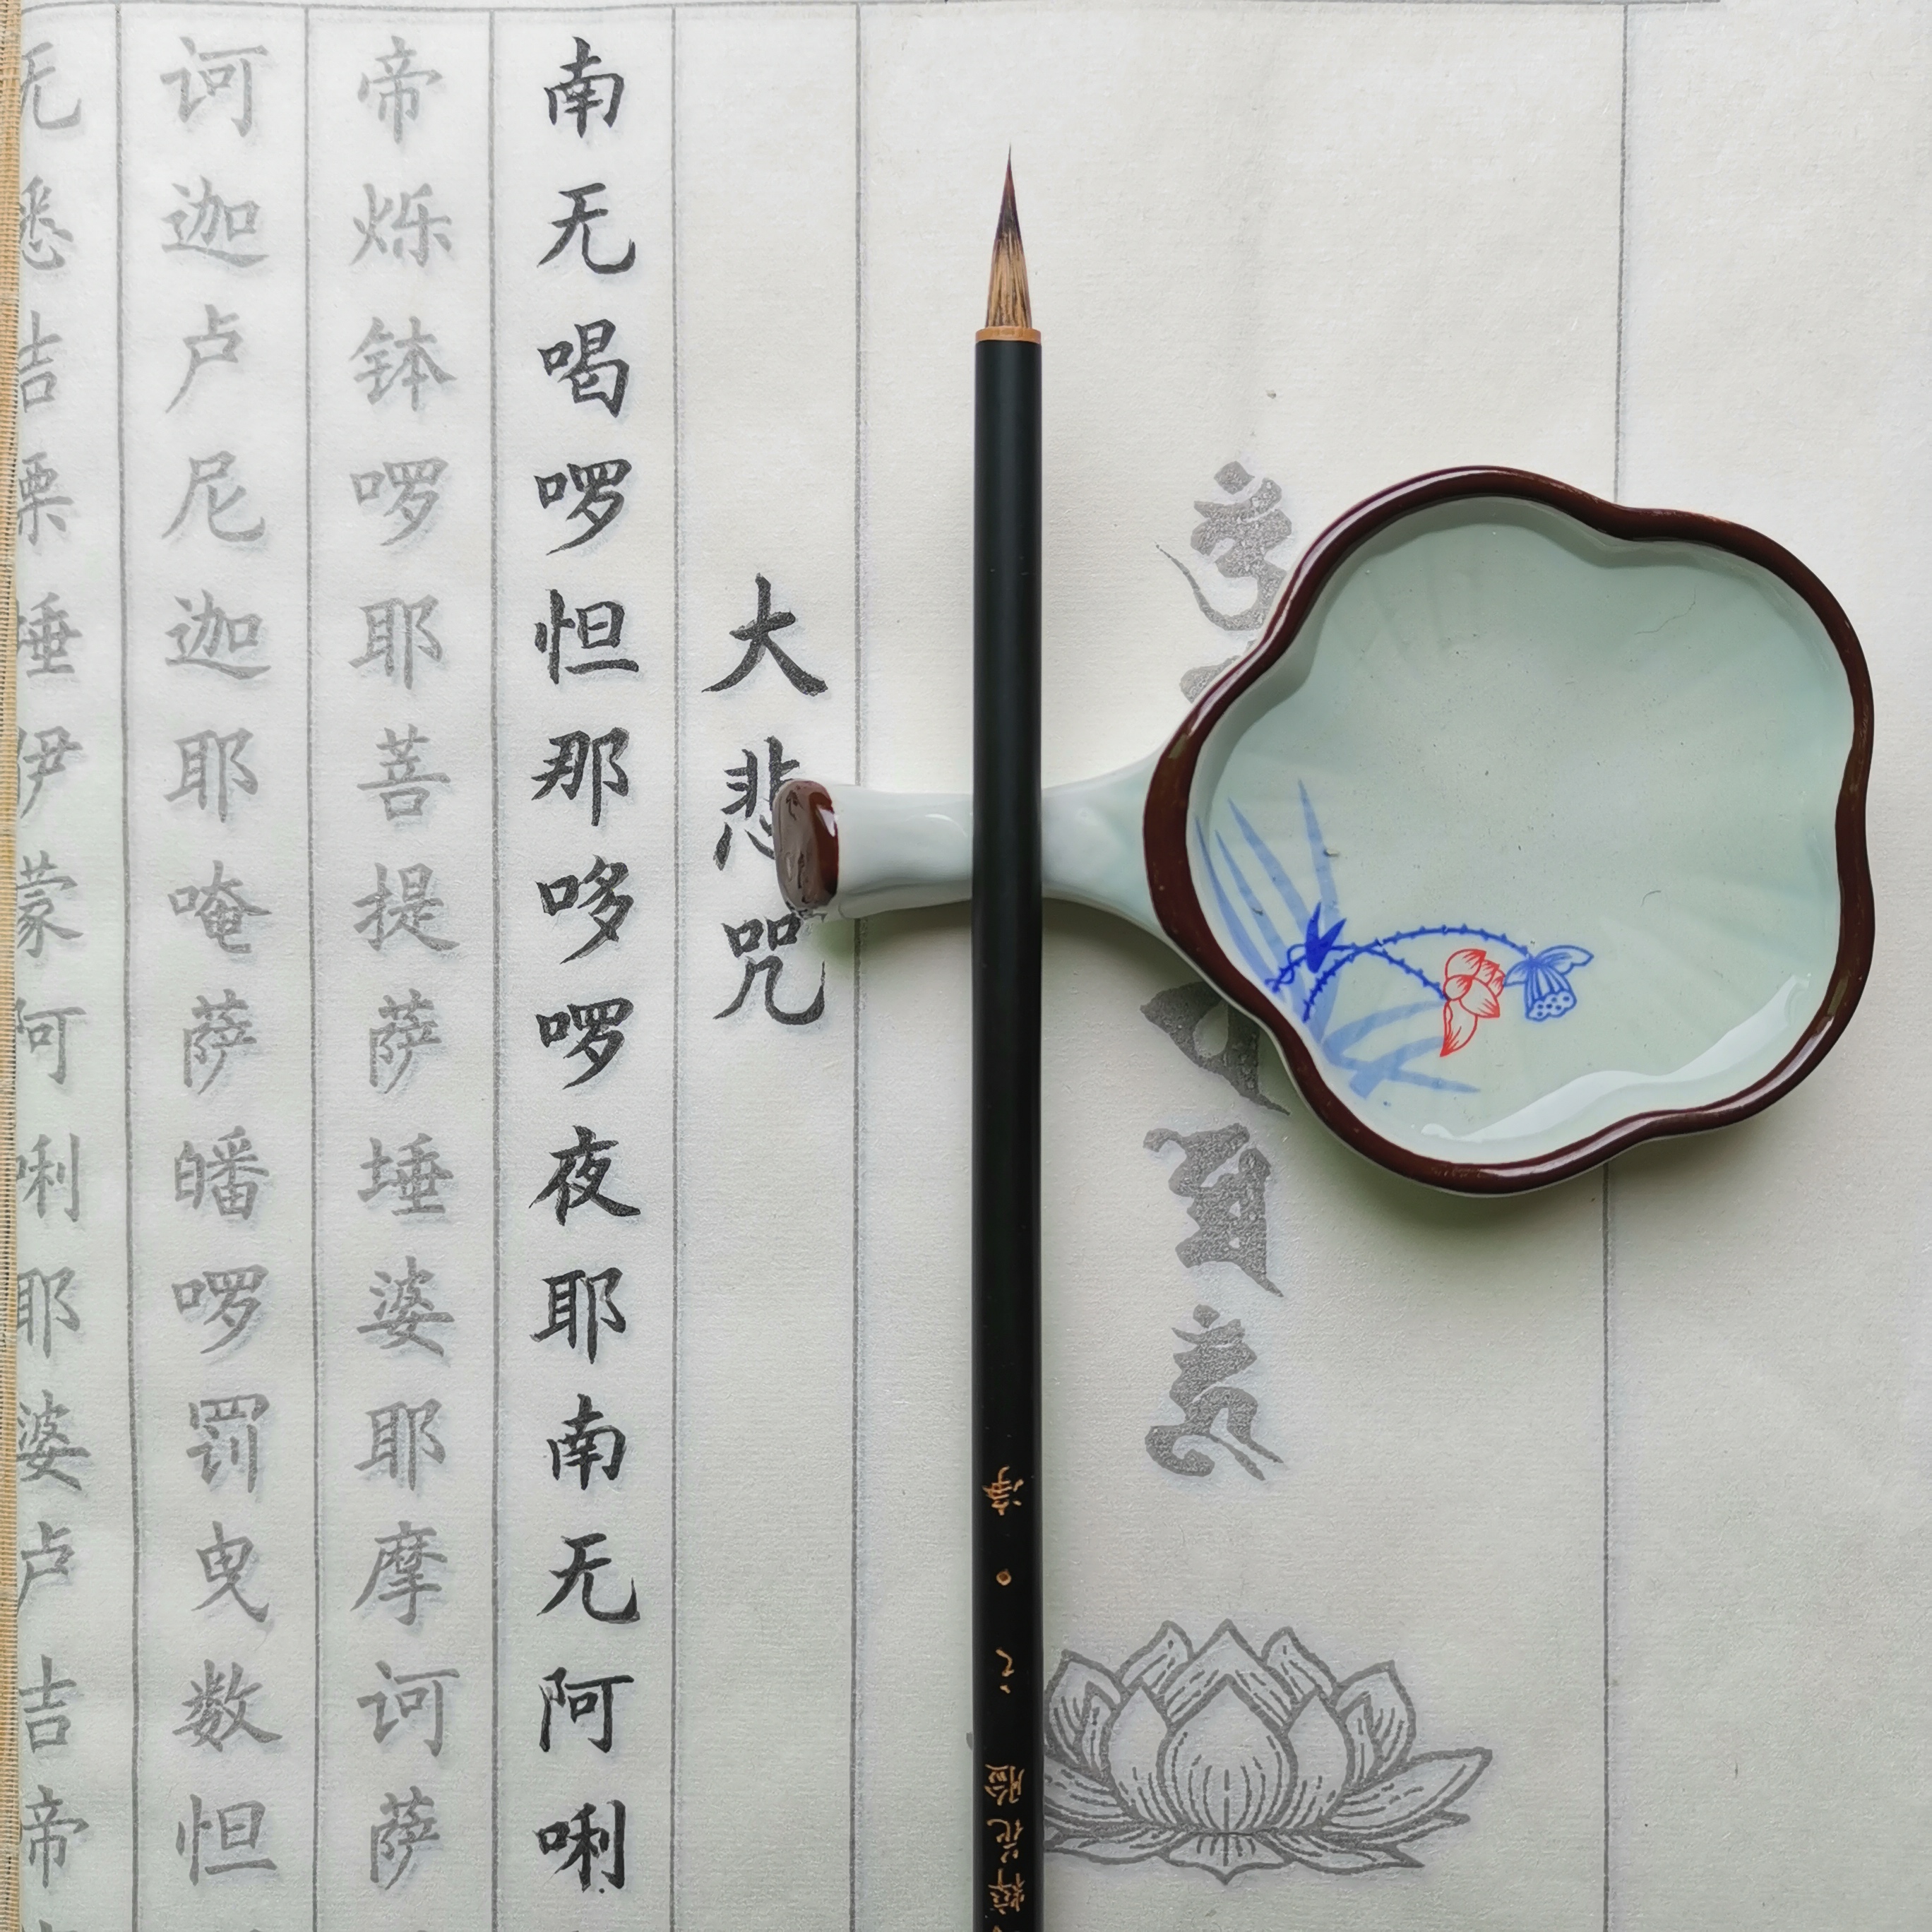 大悲咒
南无喝啰怛那哆啰夜耶南无阿唎
帝烁钵啰耶菩提萨埵婆耶摩诃萨
诃迦卢尼迦耶唵萨皤啰罚曳数怛
无悉吉栗埵伊蒙阿唎耶婆卢吉帝
净